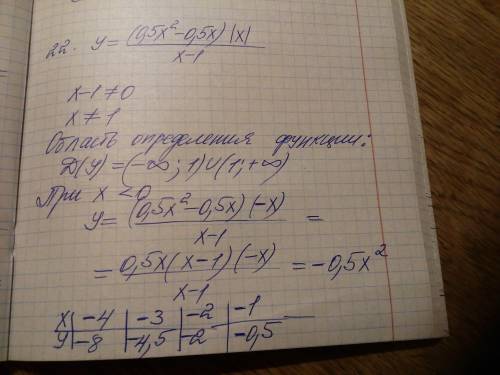 22. y = (0,5x² - 0,5x) |x| / x-1
x-1 ≠ 0
x ≠ 1
Область определения функции:
D(y) = (-∞; 1) ∪ (1; +∞)
При x < 0
y = (0,5x² - 0,5x) (-x) / x-1 =
= 0,5x (x-1) (-x) / x-1 = -0,5x²
x | -4 | -3 | -2 | -1
y | -8 | -4,5 | -2 | -0,5